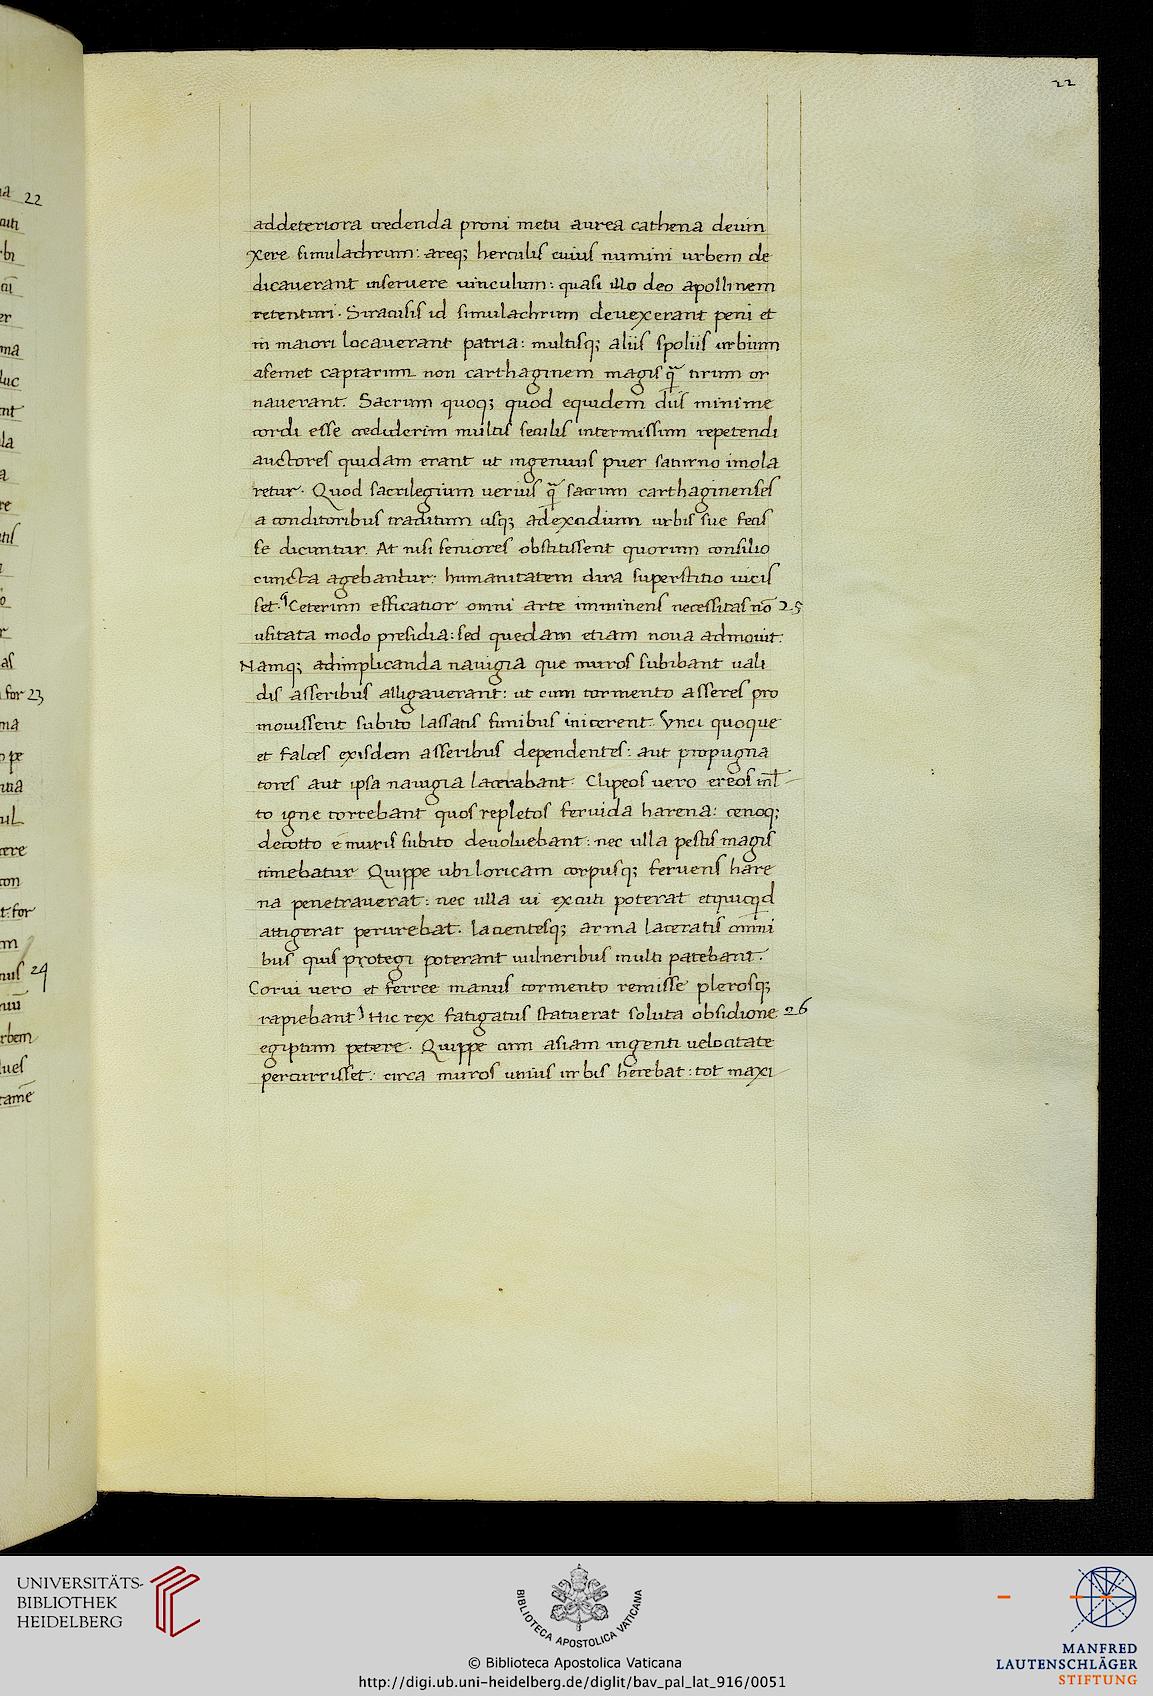 22
addeteriora credenda proni metu aurea cathena deuin
xere simulachrum: areq; herculis cuius numini urbem de
dicauerant inseruere uinculum: quasi illo deo apollinem
retenturi. Siracusis id simulachrum deuexerant peni et
in maiori locauerant patria: multisq; aliis spoliis urbium
asemet captarum non carthaginem magis q̃ tirum or
nauerant. Sacrum quoq; quod equidem diis minime
cordi esse crediderim multis seculis intermissum repetendi
auctores quidam erant ut ingenuus puer saturno imola
retur. Quod sacrilegium uerius q̃ sacrum carthaginenses
a conditoribus traditum usq; adexcidium urbis sue fecis
se dicuntur. At nisi seniores obstitissent quorum consilio
cuncta agebantur: humanitatem dira superstitio uicis
set. Ceterum efficatior omni arte imminens necessitas nō 25
usitata modo presidia: sed quedam etiam noua admouit:
Namq; adimplicanda nauigia que muros subibant uali
dis asseribus alligauerant: ut cum tormento asseres pro
mouissent subito lassatis funibus inicerent. Vnci quoque
et falces exisdem asseribus dependentes: aut propugna
tores aut ipsa nauigia lacerabant. Clipeos uero ereos ml̄
to igne torrebant quos repletos feruida harena: cenoq;
decotto e muris subito deuoluebant: nec ulla pestis magis
timebatur Quippe ubi loricam corpusq; feruens hare
na penetrauerat: nec ulla ui excuti poterat etquicqid
attigerat perurebat. Iacientesq; arma laceratis omni
bus quis protegi poterant uulneribus multi patebant.
Corui uero et ferree manus tormento remisse plerosq;
rapiebant Hic rex fatigatus statuerat soluta obsidione 26
egiptum petere. Quippe cum asiam ingenti uelocitate
percurrisset: circa muros unius urbis herebat: tot maxi
UNIVERSITÄTS-
BIBLIOTHEK
HEIDELBERG
BIBLIOTECA APOSTOLICA VATICANA
© Biblioteca Apostolica Vaticana
http://digi.ub.uni-heidelberg.de/diglit/bav_pal_lat_916/0051
MANFRED
LAUTENSCHLÄGER
STIFTUNG